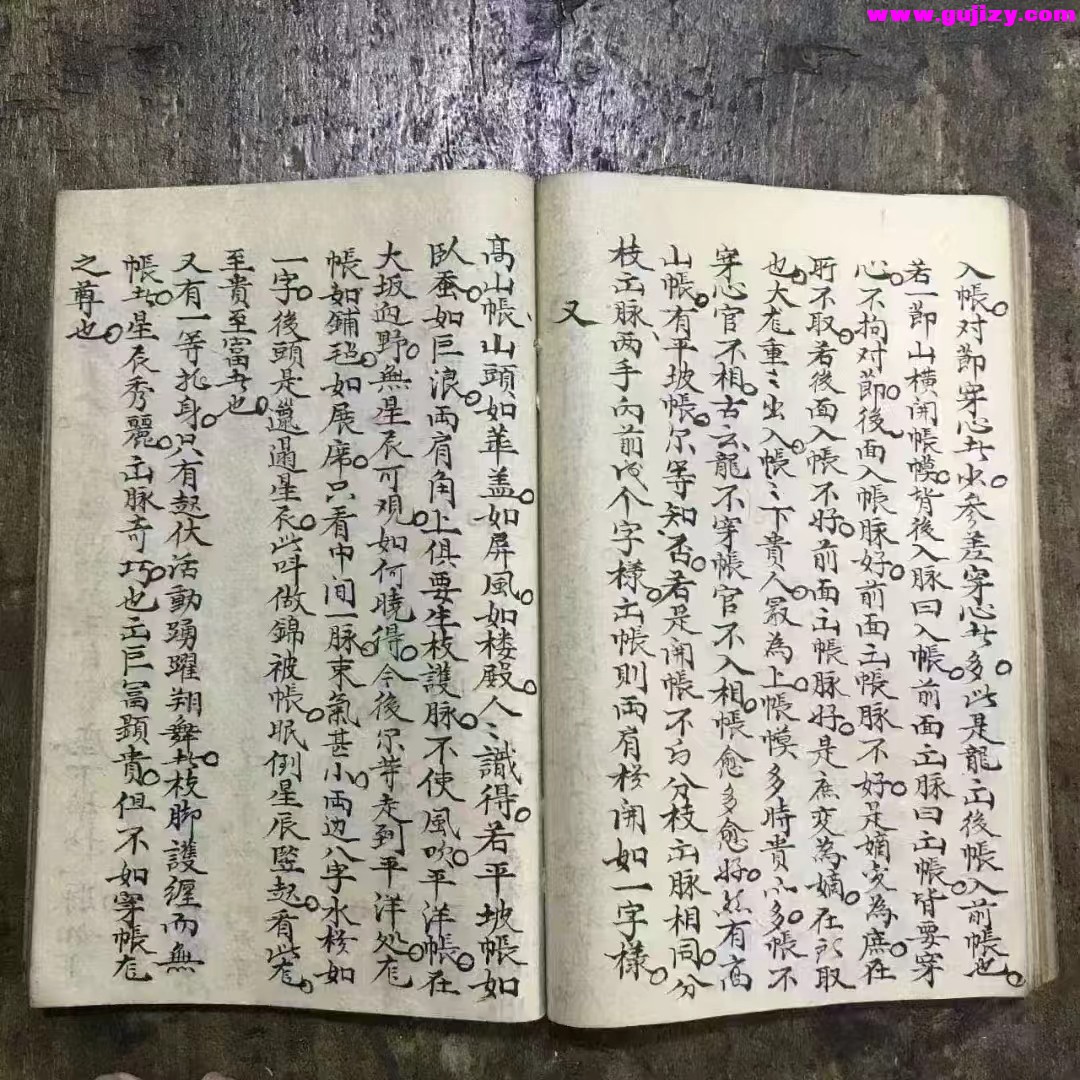 www.gujizy.com
入帳。对節穿心者少。參差穿心者多。此是龍出後帳入前帳也。
若一節山橫開帳幙。背後入脉曰入帳。前面出脉曰出帳。皆要穿
心。不拘对節。後面入帳脉好。前面出帳脉不好。是嫡变為庶。在
所不取。若後面入帳不好。前面出帳脉好。是庶变為嫡。在所取
也。大尨重〻出入帳。〻下貴人。最為上。帳幙多時貴小多。帳不
穿心官不相。古云龍不穿帳官不入相。帳愈多愈好。然有高
山帳。有平坡帳。尔等知否。若是開帳不與分枝出脉相同。分
枝出脉、两手丙前成个字樣。出帳則両肩桜開如一字樣。
又
高山帳、山頭如華盖。如屏風。如楼殿。人〻識得。若平坡帳如
臥蚕。如巨浪。両肩角上俱要生枝護脉。不使風吹。平洋帳。在
大坂迥野。無星辰可观。如何曉得。今後尔等走到平洋処。尨
帳如鋪毡。如展席。只看中间一脉束氣甚小。両边八字水桜如
一字。後頭是邋遢星辰。此呌做錦被帳。眠倒星辰竪起看。此尨
至貴至富者也。
又有一等托身。只有起伏活動踴躍翔舞者。枝脚護纏而無
帳者。星辰秀麗。出脉奇巧也。出巨富顕貴。但不如穿帳尨
之尊也。